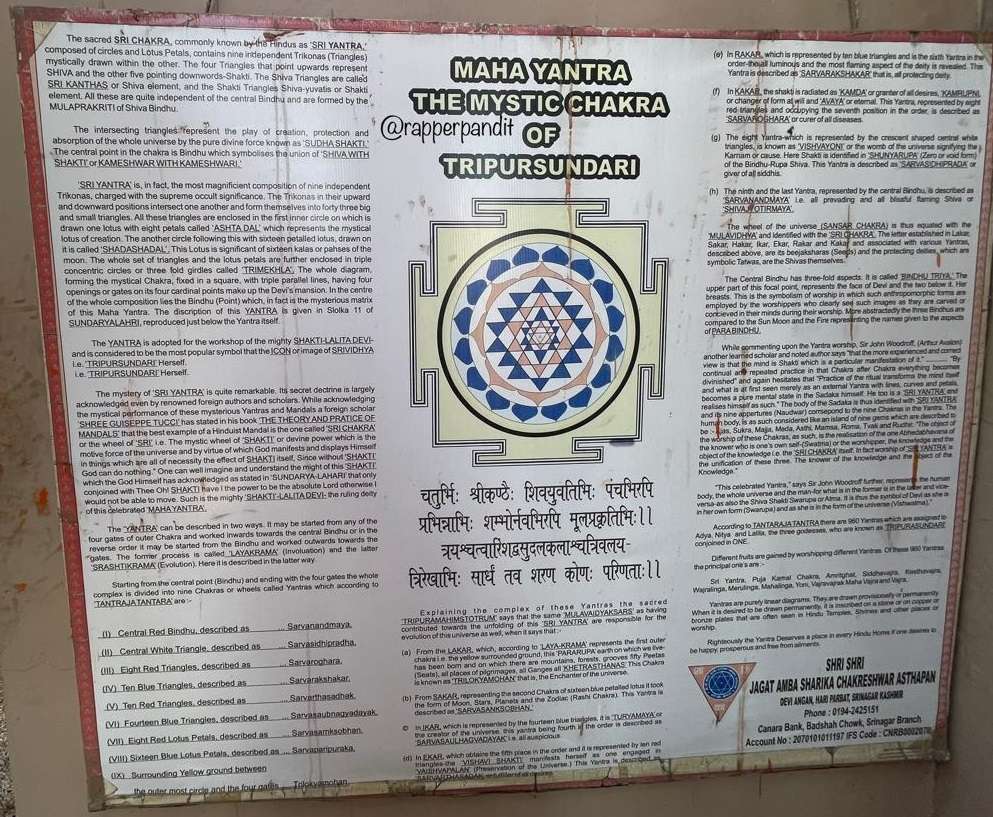 The sacred SRI CHAKRA, commonly known by the Hindus as 'SRI YANTRA,'
composed of circles and Lotus Petals, contains nine independent Trikonas (Triangles)
mystically drawn within the other. The four Triangles that point upwards represent
SHIVA and the other five pointing downwords-Shakti. The Shiva Triangles are called
SRI KANTHAS or Shiva element, and the Shakti Triangles Shiva-yuvatis or Shakti
element. All these are quite independent of the central Bindhu and are formed by the
MULAPRAKRITI of Shiva Bindhu.
The intersecting triangles represent the play of creation, protection and
absorption of the whole universe by the pure divine force known as 'SUDHA SHAKTI.'
The central point in the chakra is Bindhu which symbolises the union of 'SHIVA WITH
SHAKTI' or KAMESHWAR WITH KAMESHWARI.'
'SRI YANTRA' is, in fact, the most magnificient composition of nine independent
Trikonas, charged with the supreme occult significance. The Trikonas in their upward
and downward positions intersect one another and form themselves into forty three big
and small triangles. All these triangles are enclosed in the first inner circle on which is
drawn one lotus with eight petals called 'ASHTA DAL' which represents the mystical
lotus of creation. The another circle following this with sixteen petalled lotus, drawn on
it is called 'SHADASHADAL'. This Lotus is significant of sixteen kalas or pahses of the
moon. The whole set of triangles and the lotus petals are further enclosed in triple
concentric circles or three fold girdles called 'TRIMEKHLA'. The whole diagram,
forming the mystical Chakra, fixed in a square, with triple parallel lines, having four
openings or gates on its four cardinal points make up the Devi's mansion. In the centre
of the whole composition lies the Bindhu (Point) which, in fact is the mysterious matrix
of this Maha Yantra. The discription of this YANTRA is given in Slolka 11 of
SUNDARYALAHRI, reproduced just below the Yantra itself.
The YANTRA is adopted for the workshop of the mighty SHAKTI-LALITA DEVI-
and is considered to be the most popular symbol that the ICON or image of SRIVIDHYA
i.e. 'TRIPURSUNDARI' Herself.
i.e. 'TRIPURSUNDARI' Herself.
The mystery of 'SRI YANTRA' is quite remarkable. Its secret dectrine is largely
acknowledged even by renowned foreign authors and scholars. While acknowledging
the mystical performance of these mysterious Yantras and Mandals a foreign scholar
'SHREE GUISEPPE TUCCI' has stated in his book 'THE THEORY AND PRATICE OF
MANDALS' that the best example of a Hinduist Mandal is the one called 'SRI CHAKRA'
or the wheel of 'SRI i.e. The mystic wheel of 'SHAKTI' or devine power which is the
motive force of the universe and by virtue of which God manifests and displays Himself
in things which are all of necessity the effect of SHAKTI itself, Since without 'SHAKTI'
God can do nothing." One can well imagine and understand the might of this 'SHAKTI'
which the God Himself has acknowledged as stated in 'SUNDARYA-LAHARI' that only
conjoined with Thee Oh! SHAKTI have I the power to be the absolute Lord otherwise I
would not be able to move. Such is the mighty 'SHAKTI'-LALITA DEVI- the ruling deity
of this celebrated 'MAHA YANTRA'.
The 'YANTRA' can be described in two ways. It may be started from any of the
four gates of outer Chakra and worked inwards towards the central Bindhu or in the
reverse order it may be started from the Bindhu and worked outwards towards the
gates. The former process is called 'LAYAKRAMA' (Involuation) and the latter
'SRASHTIKRAMA' (Evolution). Here it is described in the latter way.
Starting from the central point (Bindhu) and ending with the four gates the whole
complex is divided into nine Chakras or wheels called Yantras which according to
'TANTRAJA TANTARA' are :-
(I) Central Red Bindhu, described as ........ Sarvanandmaya,
(II) Central White Triangle, described as .... Sarvasidhipradha,
(III) Eight Red Triangles, described as ...... Sarvaroghara,
(IV) Ten Blue Triangles, described as ...... Sarvarakshakar,
(V) Ten Red Triangles, described as ..... Sarvarthasadhak,
(VI) Fourteen Blue Triangles, described as .... Sarvasaubnagyadayak,
(VII) Eight Red Lotus Petals, described as .... Sarvasamksobhan,
(VIII) Sixteen Blue Lotus Petals, described as ... Sarvaparipuraka,
(IX) Surrounding Yellow ground between
the outer most circle and the four gates .... Trilokyamohan
MAHA YANTRA
THE MYSTIC CHAKRA
@rapperpandit OF
TRIPURSUNDARI
चतुर्भिः श्रीकण्ठैः शिवयुवतिभिः पंचभिरपि
प्रभिन्नाभिः शम्भोर्नवभिरपि मूलप्रकृतिभिः।।
त्रयश्चत्वारिंशद्वसुदलकलाश्चत्रिवलय-
त्रिरेखाभिः सार्धं तव शरण कोणः परिणताः।।
Explaining the complex of these Yantras the sacred
'TRIPURAMAHIMSTOTRUM' says that the same 'MULAVAIDYAKSARS' as having
contributed towards the unfolding of this 'SRI YANTRA' are responsible for the
evolution of this universe as well, when it says that :-
(a) From the LAKAR, which, according to 'LAYA-KRAMA' represents the first outer
chakra i.e. the yellow surrounded ground, this 'PARARUPA' earth on which we live-
has been born and on which there are mountains, forests, grooves fifty Peetas
(Seats), all places of pilgrimages, all Ganges all 'KHETRASTHANAS' This Chakra
is known as 'TRILOKYAMOHAN' that is, the Enchanter of the universe.
(b) From SAKAR, representing the second Chakra of sixteen blue petalled lotus it took
the form of Moon, Stars, Planets and the Zodiac (Rashi Chakra). This Yantra is
described as 'SARVASAMKSOBHAN.'
© In IKAR, which is represented by the fourteen blue triangles, it is 'TURYAMAYA' or
the creator of the universe. this yantra being fourth in the order is described as
'SARVASAULHAGVADAYAK' i.e. all auspicious
(d) In EKAR, which obtains the fifth place in the order and it is represented by ten red
triangles-the 'VISHAVI SHAKTI' manifests herself as one engaged in
'VAISHVAPALAN' (Preservation of the Universe.) This Yantra is described as
'SARVARTHASADAK'
(e) In RAKAR, which is represented by ten blue triangles and is the sixth Yantra in the
order-thouall luminous and the most flaming aspect of the deity is revealed. This
Yantra is described as 'SARVARAKSHAKAR' that is, all protecting deity.
(f) In KAKAR, the shakti is radiated as 'KAMDA' or granter of all desires, 'KAMRUPNI,
or changer of form at will and 'AVAYA' or eternal. This Yantra, represented by eight
red triangles and occupying the seventh position in the order, is described as
'SARVAROGHARA' or curer of all diseases.
(g) The eight Yantra-which is represented by the crescent shaped central white
triangles, is known as 'VISHVAYONI' or the womb of the universe signifying the
Karnam or cause. Here Shakti is identified in 'SHUNYARUPA' (Zero or void form)
of the Bindhu-Rupa Shiva. This Yantra is described as 'SARVASIDHIPRADA' or
giver of all siddhis.
(h) The ninth and the last Yantra, represented by the central Bindhu, is described as
'SARVANANDMAYA' i.e. all prevading and all blissful flaming Shiva or
'SHIVAJYOTIRMAYA'.
The wheel of the universe (SANSAR CHAKRA) is thus equated with the
'MULAVIDHYA' and identified with the 'SRI CHAKRA'. The letter established in Lakar,
Sakar, Hakar, Ikar, Ekar, Rakar and Kakar and associated with various Yantras,
described above, are its beejaksharas (Seeds) and the protecting deities, which are
symbolic Tatwas, are the Shivas themselves.
The Central Bindhu has three-fold aspects. It is called 'BINDHU TRIYA.' The
upper part of this focal point, represents the face of Devi and the two below it. Her
breasts. This is the symbolism of worship in which such anthropomorphic forms are
employed by the worshippers who clearly see such images as they are carved or
concieved in their minds during their worship. More abstractedly the three Bindhus are
compared to the Sun Moon and the Fire representing the names given to the aspects
of PARA BINDHU.
While commenting upon the Yantra worship, Sir John Woodroff, (Arthur Avalon)
another learned scholar and noted author says "that the more experienced and correct
view is that the mind is Shakti which is a particular manifestation of it." ........... "By
continual and repeated practice in that Chakra after Chakra everything becomes
divinished" and again hesitates that "Practice of the ritual transforms the mind itself
and what is at first seen merely as an external Yantra with lines, curves and petals,
becomes a pure mental state in the Sadaka himself. He too is a 'SRI YANTRA' and
realises himself as such." The body of the Sadaka is thus identified with 'SRI YANTRA'
and is nine appertures (Naudwar) correspond to the nine Chakras in the Yantra. The
human body, is as such considered like an island of nine gems which are described to
be :- Rasa, Sukra, Majja, Meda, Asthi, Mamsa, Roma, Tvak and Rudhir. "The object of
the worship of these Chakras, as such, is the realisation of the one Abhedabhavana of
the knower who is one's own self-(Swatma) or the worshipper, the knowledge and the
object of the knowledge i.e. the 'SRI CHAKRA' itself. In fact worship of 'SRI YANTRA' is
the unification of these three. The knower of the knowledge and the object of the
Knowledge."
"This celebrated Yantra," says Sir John Woodroff further, represents the human
body, the whole universe and the man-for what is in the former is in the latter and vice-
versa-as also the Shiva Shakti Swarupa or Atma. It is thus the symbol of Devi as she is
in her own form (Swarupa) and as she is in the form of the universe (Vishwatma)."
According to TANTARAJA TANTRA there are 960 Yantras which are assigned to
Adya, Nitya and Lalita, the three godesses, who are known as TRIPURASUNDARI
conjoined in ONE.
Different fruits are gained by worshipping different Yantras. Of these 960 Yantras
the principal one's are :-
Sri Yantra, Puja Kamal Chakra, Amritghat, Siddhavajra, Kasthavajra,
Wajralinga, Merulinga, Mahalinga, Yoni, Vajravajrak Maha Vajra and Vajra.
Yantras are purely linear diagrams. They are drawn provisionaly or permanently.
When it is desired to be drawn permanently, it is inscribed on a stone or on copper or
bronze plates that are often seen in Hindu Temples, Shrines and other places or
worship.
Righteously the Yantra Deserves a place in every Hindu Home if one desires to
be happy, prosperous and free from ailments.
SHRI SHRI
JAGAT AMBA SHARIKA CHAKRESHWAR ASTHAPAN
DEVI ANGAN, HARI PARBAT, SRINAGAR KASHMIR
Phone : 0194-2425151
Canara Bank, Badshah Chowk, Srinagar Branch
Account No : 2070101011197 IFS Code : CNRB0002070